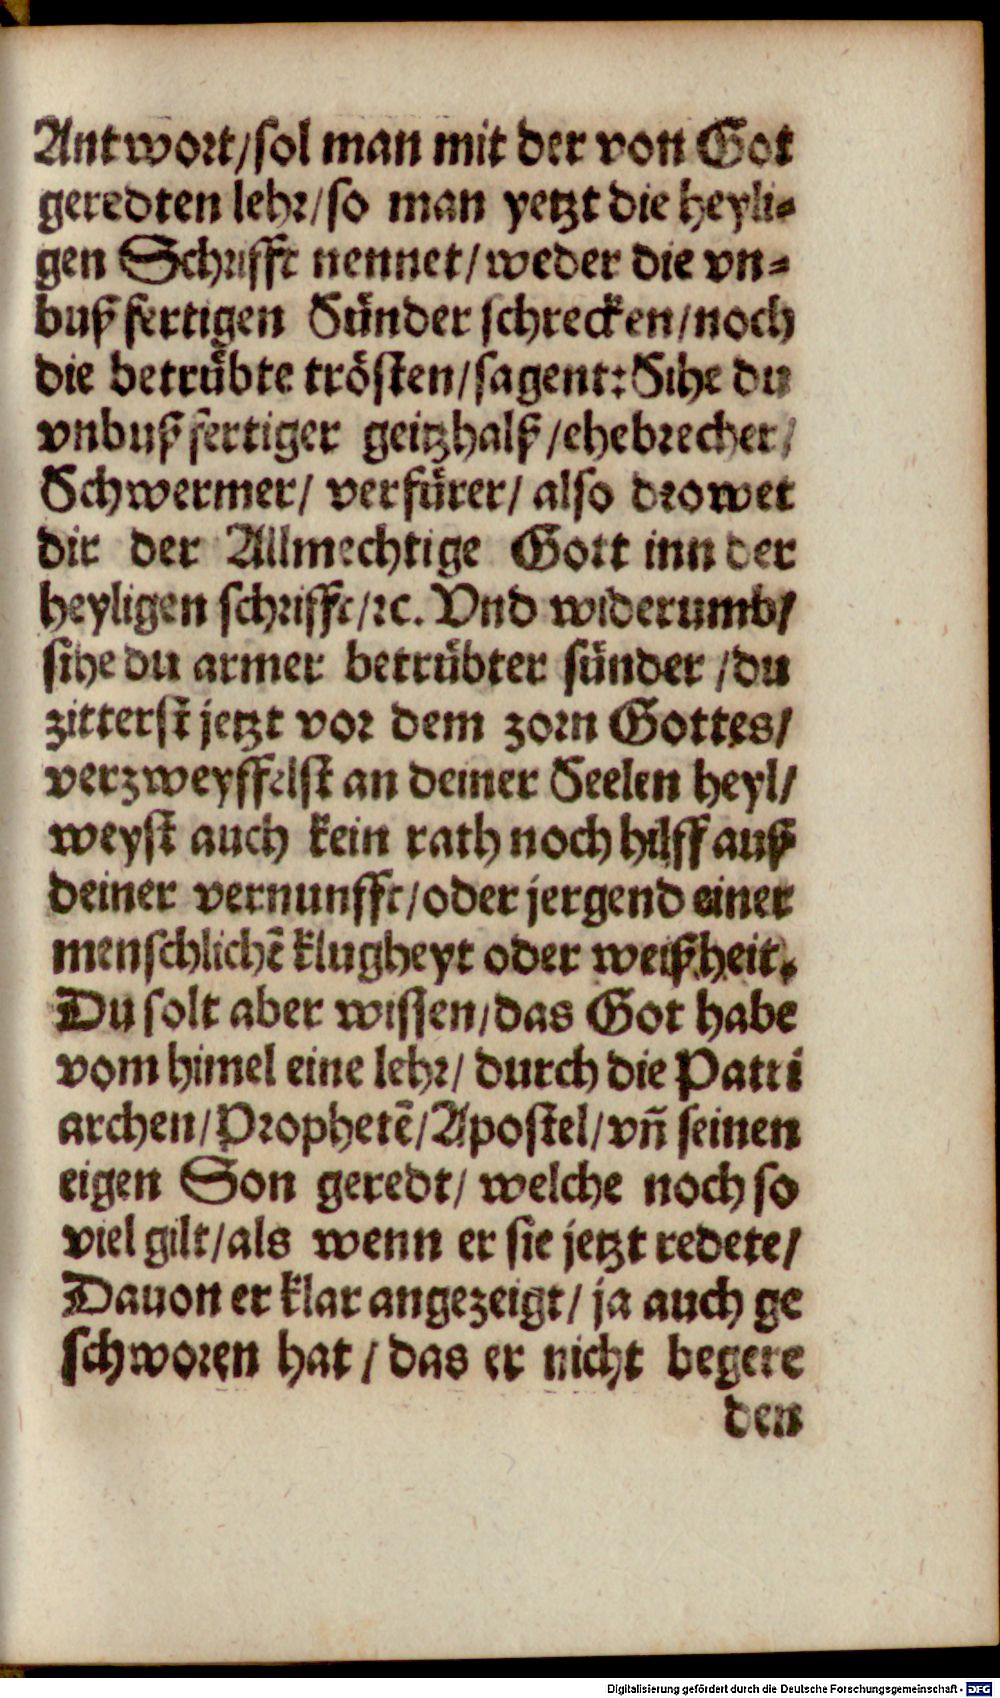 Antwort/sol man mit der von Got
geredten lehr/so man yetzt die heyli-
gen Schrifft nennet/weder die vn-
bußfertigen Sünder schrecken/noch
die betrübte trösten/sagent: Sihe du
vnbußfertiger geitzhalß/ehebrecher/
Schwermer/ verfürer/ also drowet
dir der Allmechtige Gott inn der
heyligen schrifft/ꝛc. Vnd widerumb/
sihe du armer betrübter sünder /du
zitterst jetzt vor dem zorn Gottes/
verzweyffelst an deiner Seelen heyl/
weyst auch kein rath noch hilff auß
deiner vernunfft/oder jergend einer
menschlichē klugheyt oder weißheit.
Du solt aber wissen/das Got habe
vom himel eine lehr/ durch die Patri
archen/Prophetē/Apostel/vñ seinen
eigen Son geredt/ welche noch so
viel gilt/als wenn er sie jetzt redete/
Dauon er klar angezeigt/ ja auch ge
schworen hat / das er nicht begere
den
Digitalisierung gefördert durch die Deutsche Forschungsgemeinschaft - DFG